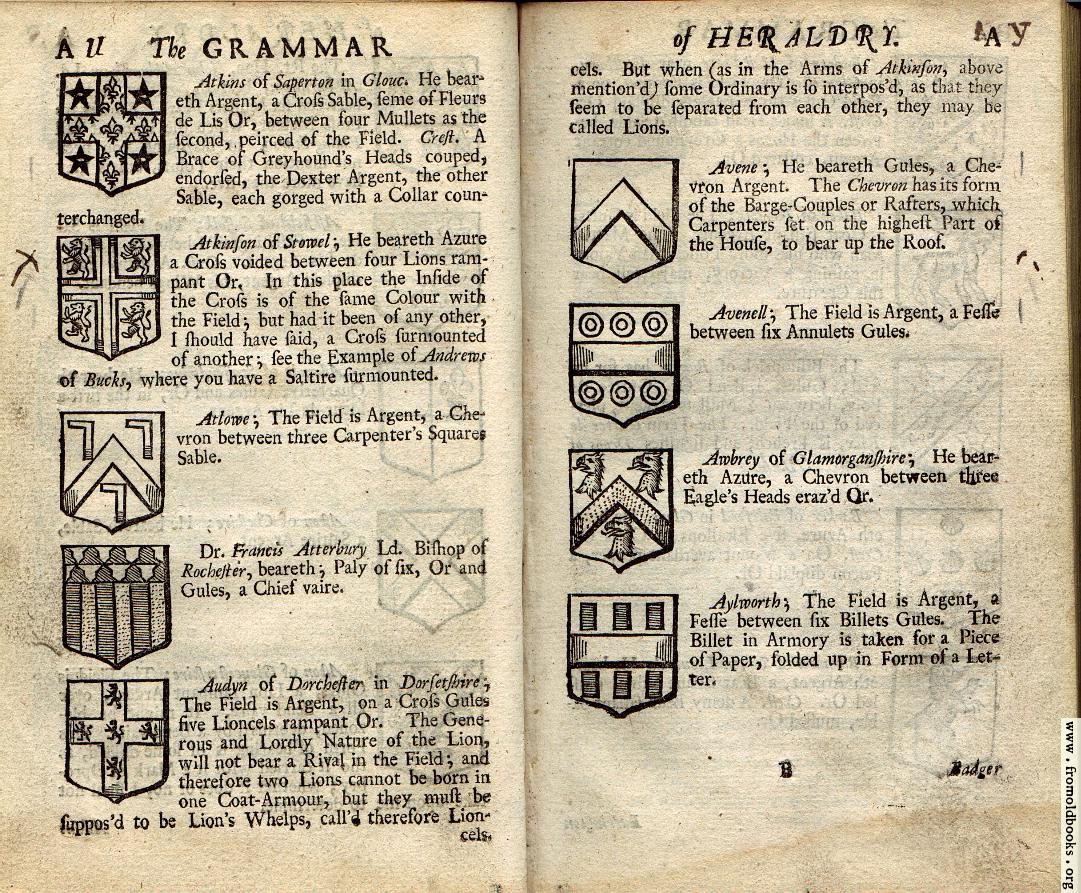 A U The GRAMMAR
Atkins of Saperton in Glouc. He bear-
eth Argent, a Croſs Sable, ſeme of Fleurs
de Lis Or, between four Mullets as the
ſecond, peirced of the Field. Creſt. A
Brace of Greyhound's Heads couped,
endorſed, the Dexter Argent, the other
Sable, each gorged with a Collar coun-
terchanged.
Atkinſon of Stowel; He beareth Azure
a Croſs voided between four Lions ram-
pant Or. In this place the Inſide of
the Croſs is of the ſame Colour with
the Field; but had it been of any other,
I ſhould have ſaid, a Croſs ſurmounted
of another; ſee the Example of Andrews
of Bucks, where you have a Saltire ſurmounted.
Atlowe; The Field is Argent, a Che-
vron between three Carpenter's Squares
Sable.
Dr. Francis Atterbury Ld. Biſhop of
Rocheſter, beareth; Paly of ſix, Or and
Gules, a Chief vaire.
Audyn of Dorcheſter in Dorſetſhire;
The Field is Argent, on a Croſs Gules
five Lioncels rampant Or. The Gene-
rous and Lordly Nature of the Lion,
will not bear a Rival in the Field; and
therefore two Lions cannot be born in
one Coat-Armour, but they muſt be
ſuppos'd to be Lion's Whelps, call'd therefore Lion-
cels.
of HERALDRY. A Y
cels. But when (as in the Arms of Atkinſon, above
mention'd) ſome Ordinary is ſo interpos'd, as that they
ſeem to be ſeparated from each other, they may be
called Lions.
Avene; He beareth Gules, a Che-
vron Argent. The Chevron has its form
of the Barge-Couples or Rafters, which
Carpenters ſet on the higheſt Part of
the Houſe, to bear up the Roof.
Avenell; The Field is Argent, a Feſſe
between ſix Annulets Gules.
Awbrey of Glamorganſhire; He bear-
eth Azure, a Chevron between three
Eagle's Heads eraz'd Or.
Aylworth; The Field is Argent, a
Feſſe between ſix Billets Gules. The
Billet in Armory is taken for a Piece
of Paper, folded up in Form of a Let-
ter.
B Badger
www.fromoldbooks.org